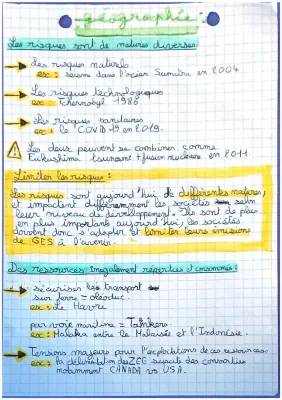 géographie:
Les risques sont de natures diverses
des risques naturels
ex: séisme dans l'océan Sumatra en 2004
Les risques technologiques
ex: Tchernobyl 1986
Les risques sanitaires
ex: le COVID 19 en 2019.
Les deux peuvent se combiner comme
Fukushima tsunami + fusion nucléaire en 2011
Limiter les risques:
Les risques sont aujourd'hui de différentes natures,
et impactent différemment les sociétés selon
leur niveau de développement. Ils sont de plus
en plus importants aujourd'hui, les sociétés
doivent donc s'adapter et limiter leurs émissions
de GES à l'avenir.
Des ressources inégalement réparties et consommées:
sécuriser les transport
sur terre = oléoduc.
ex: Le Havre
par voie maritime = Tankers
ex: Malaka entre la Malaisie et l'Indonésie.
Tensions majeures pour l'exploitations de ces ressources:
ex: la délimitation des ZEE suscite des convoitises
notamment CANADA vs USA.